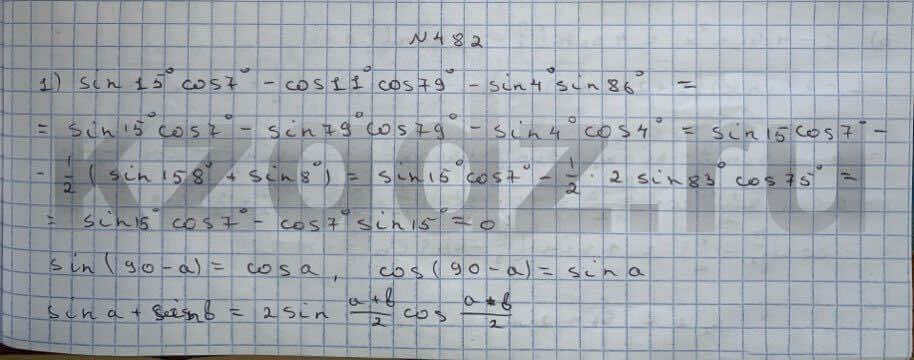 N482
1) sin 15° cos7° - cos11° cos79° - sin4° sin86° =
= sin15° cos7° - sin79° cos79° - sin4° cos4° = sin15 cos7° -
- 1/2 ( sin158° + sin8° ) = sin15° cos7° - 1/2 · 2 sin83° cos75° =
= sin15° cos7° - cos7° sin15° = 0
sin(90-a) = cosa, cos(90-a) = sina
sina + sinb = 2 sin (a+b)/2 cos (a-b)/2
kzgdz.ru